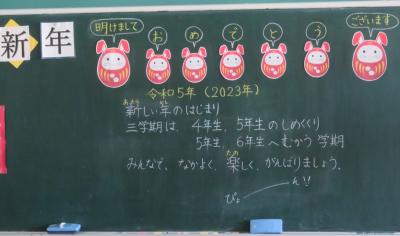 新年
明けまして お め で と う ございます
令和5年（2023年）
新しい年のはじまり
三学期は、4年生、5年生のしめくくり
5年生、6年生へむかう学期
みんなで、なかよく、楽しく、がんばりましょう。
ぴょーん!!